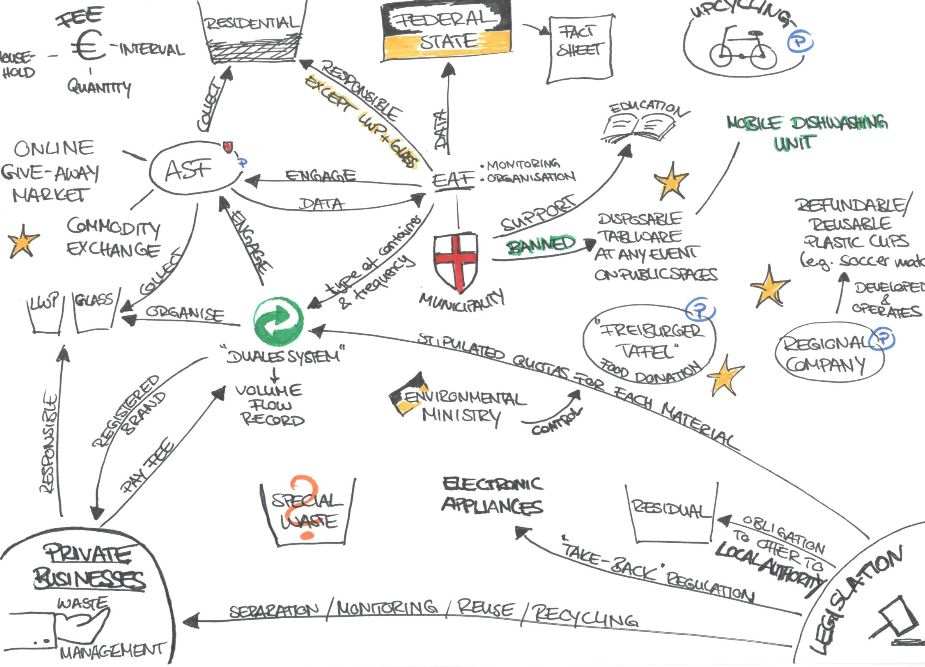 FEE
€
HOUSE-
HOLD
INTERVAL
QUANTITY
RESIDENTIAL
FEDERAL
STATE
FACT
SHEET
UPCYCLING
?
COLLECT
RESPONSIBLE
EXCEPT LWP + GLASS
DATA
EDUCATION
MOBILE DISHWASHING
UNIT
ONLINE
GIVE-AWAY
MARKET
ASF
?
ENGAGE
DATA
EAF
· MONITORING
· ORGANISATION
SUPPORT
BANNED
DISPOSABLE
TABLWARE
AT ANY EVENT
ON PUBLIC SPACES
REFUNDABLE/
REUSABLE
PLASTIC CUPS
(e.g. soccer
COMMODITY
EXCHANGE
COLLECT
ENGAGE
type of container
& frequency
MUNICIPALITY
DEVELOPED
&
OPERATES
LWP
GLASS
ORGANISE
"DUALES SYSTEM"
VOLUME
FLOW
RECORD
STIPULATED QUOTAS FOR EACH MATERIAL
"FREIBURGER
TAFEL"
FOOD DONATION
?
REGIONAL
COMPANY
?
ENVIRONMENTAL
MINISTRY
CONTROL
RESPONSIBLE
REGISTERED
BRAND
PAY FEE
SPECIAL
WASTE
?
ELECTRONIC
APPLIANCES
RESIDUAL
OBLIGATION
TO
TO
LOCAL AUTHORITY
"TAKE-BACK" REGULATION
PRIVATE
BUSINESSES
WASTE
MANAGEMENT
SEPARATION / MONITORING / REUSE / RECYCLING
LEGISLATION